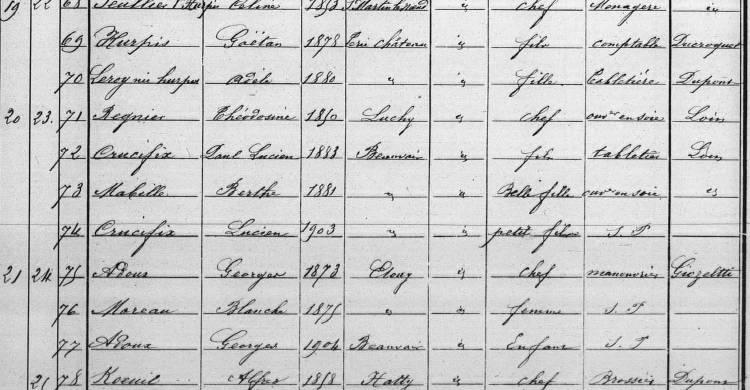 19 22 68 Hurpis Céline 1853 " chef Ménagère "
69 Hurpis Gaëtan 1878 Trie château " fils comptable Ducroquet
70 Leroy née hurpis Adèle 1880 " " fille Tabletière Dupont
20 23. 71 Regnier Théodosine 1850 Luchy " chef ouvre en soie Loin
72 Crucifix Paul Lucien 1883 Beauvais " fils tabletier Loin
73 Mabille Berthe 1881 " " Belle fille ouvre en soie "
74 Crucifix Lucien 1903 " " petit fils S. P
21 24 75 Adoux Georges 1873 " chef manouvrier
76 Moreau Blanche 1875 " " femme S. P
77 Adoux Georges 1904 Beauvais " Enfant S. P
21 78 Alfred 1858 " chef Brossier Dupont